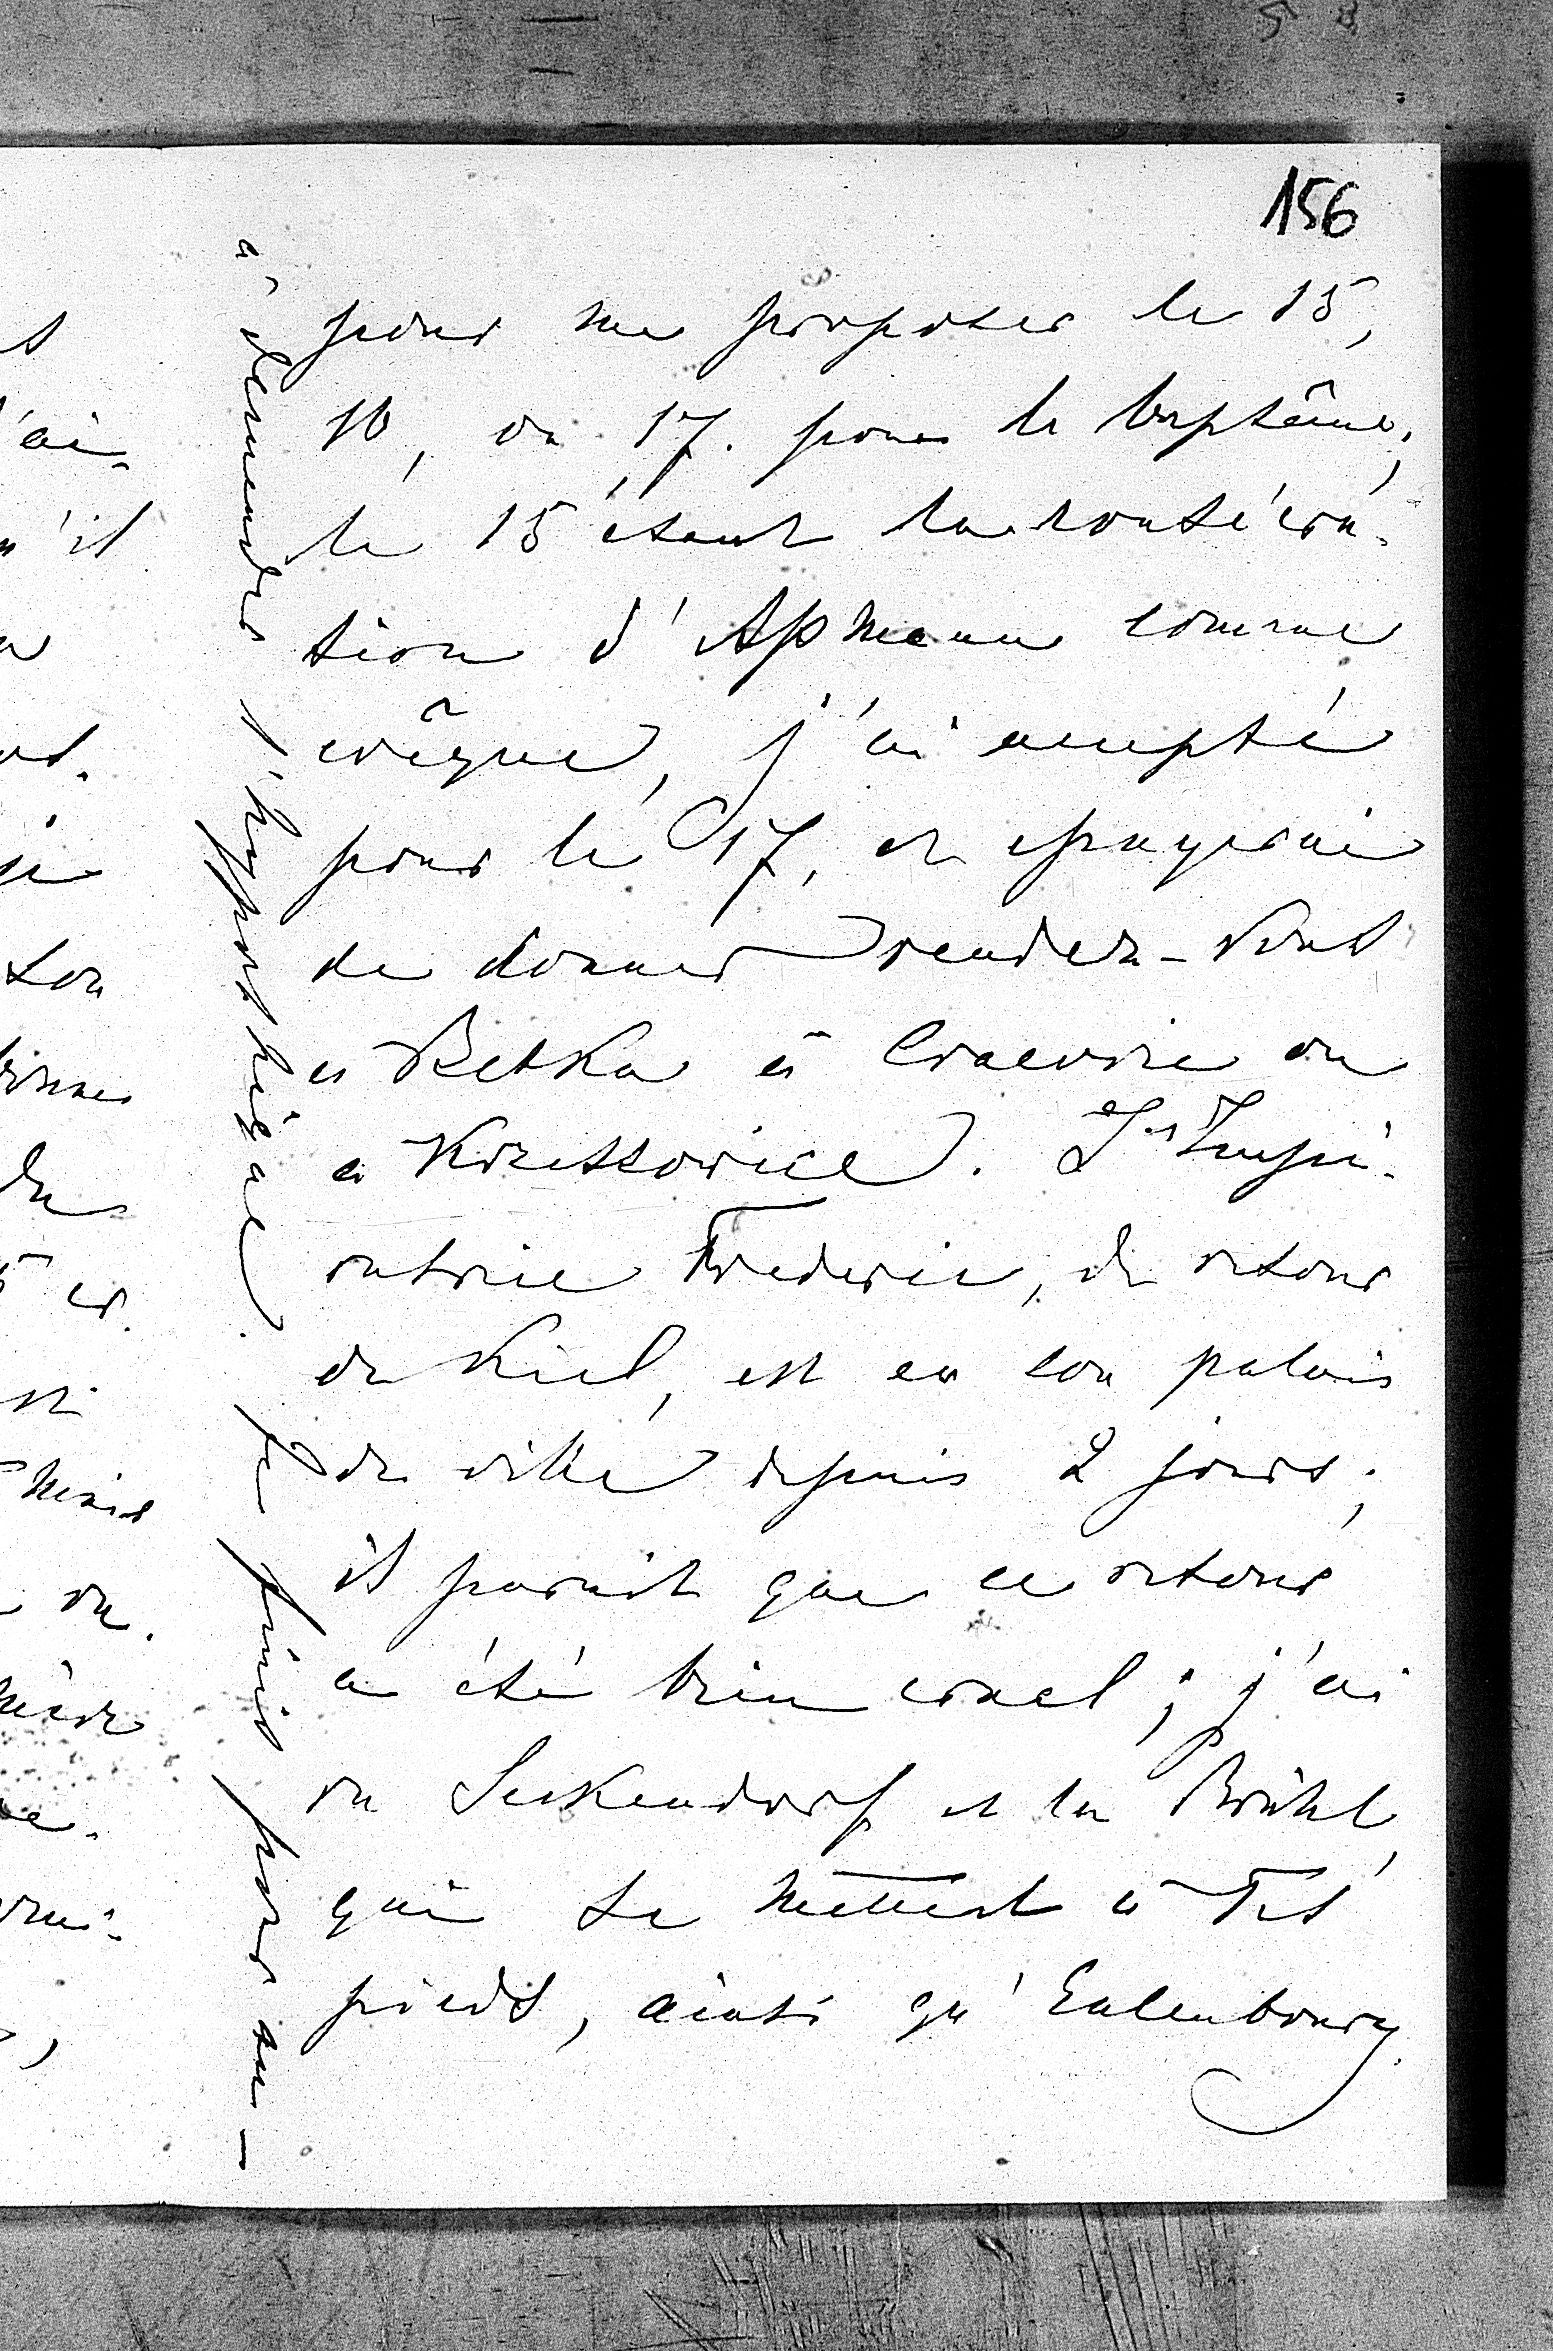 156
pour me proposer le 15,
16, ou 17. pour le baptême;
le 15 étant la consécra-
tion d'Assmann comme
evêque, j'ai accepté
pour le 17, et essayerai
de donner rendez-vous
à Betka à Cracovie ou
à Krzessowice. L'Impé-
ratrice Frederic, de retour
de Kiel, est en son palais
de ville depuis 2 jours;
il parait que ce retour
a été bien cruel; j'ai
vu Seckendorf et la Brühl,
qui se mettent à Tes
pieds, ainsi qu'Eulenbourg.
à demander l'hypothèque. Je finis pour au-